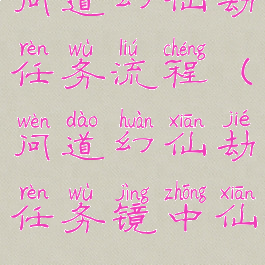 问道幻仙劫
rèn wù liú chéng
任务流程（
wèn dào huàn xiān jié
问道幻仙劫
rèn wù jìng zhōng xiān
任务镜中仙